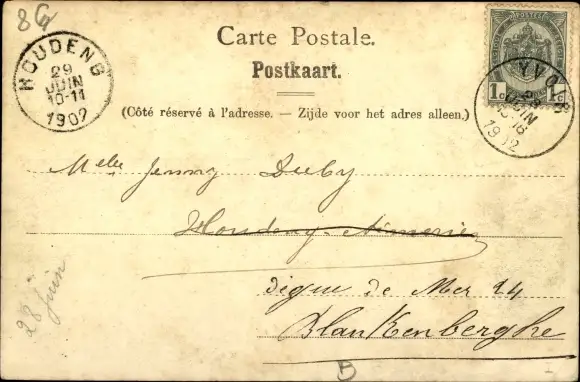 8
Carte Postale.
Postkaart.
(Côté réservé à l'adresse. — Zijde voor het adres alleen.)
HOUDENG
29
JUIN
10-11
1902
POSTES
1c 1c
YVOIR
JUIN
1902
Melle Jenny Duby
Houdeng-Aimeries
digue de Mer 24
Blankenberghe
28 juin
B